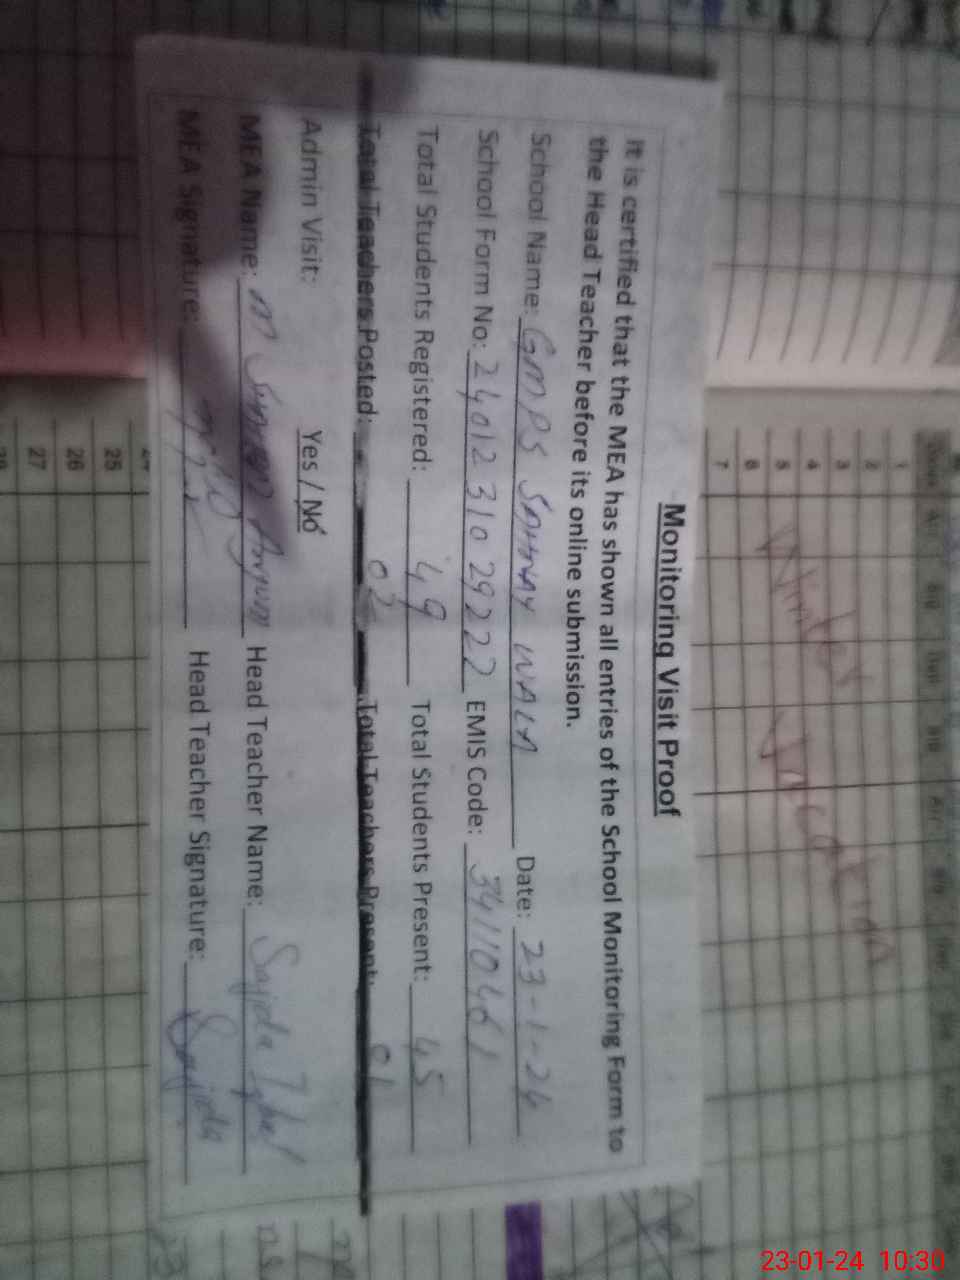 Monitoring Visit Proof
It is certified that the MEA has shown all entries of the School Monitoring Form to
the Head Teacher before its online submission.
School Name: GMPS SAHNAY WALA Date: 23-1-24
School Form No: 24012 310 29222 EMIS Code: 34110461
Total Students Registered: 49 Total Students Present: 45
Total Teachers Posted: 02 Total Teachers Present: 01
Admin Visit: Yes / No
MEA Name: M Head Teacher Name: Sajida Iqbal
MEA Signature: Head Teacher Signature: Sajida
Winter Vacation
1
2
3
4
5
6
7
25
26
27
23-01-24 10:30